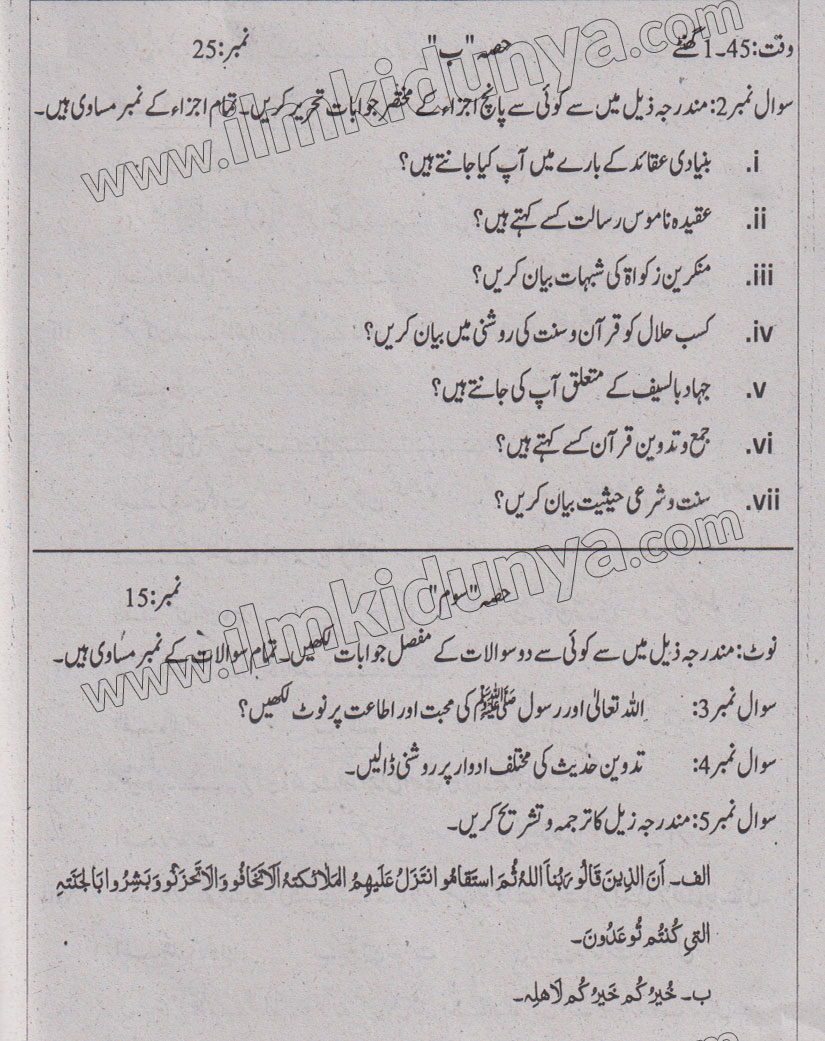 وقت: 45۔1 گھنٹے حصہ "ب" نمبر: 25
سوال نمبر 2: مندرجہ ذیل میں سے کوئی سے پانچ اجزاء کے مختصر جوابات تحریر کریں۔ تمام اجزاء کے نمبر مساوی ہیں۔
i. بنیادی عقائد کے بارے میں آپ کیا جانتے ہیں؟
ii. عقیدہ ناموس رسالت کسے کہتے ہیں؟
iii. منکرین زکواۃ کی شبہات بیان کریں؟
iv. کسب حلال کو قرآن و سنت کی روشنی میں بیان کریں؟
v. جہاد بالسیف کے متعلق آپ کی جانتے ہیں؟
vi. جمع و تدوین قرآن کسے کہتے ہیں؟
vii. سنت و شرعی حیثیت بیان کریں؟
حصہ "سوم" نمبر: 15
نوٹ: مندرجہ ذیل میں سے کوئی سے دو سوالات کے مفصل جوابات لکھیں۔ تمام سوالات کے نمبر مساوی ہیں۔
سوال نمبر 3: اللہ تعالیٰ اور رسول ﷺ کی محبت اور اطاعت پر نوٹ لکھیں؟
سوال نمبر 4: تدوین حدیث کی مختلف ادوار پر روشنی ڈالیں۔
سوال نمبر 5: مندرجہ زیل کا ترجمہ و تشریح کریں۔
الف۔ اَنَ الذِینَ قَالُو رَبُناَ اللہُ ثُمَ استَقَامُو انتَزَلُ عَلَیھِمُ المَلَائکتہُ اَلَاتَخَافُو وَالَاتَحزَنُو وَبَشِرُوا بِالجَنَتہِ
التیِ کُنتُم تُوعَدُونَ۔
ب۔ خُیرُ کُم خَیرُ کُم لَاھلِہ۔
www.ilmkidunya.com
www.ilmkidunya.com